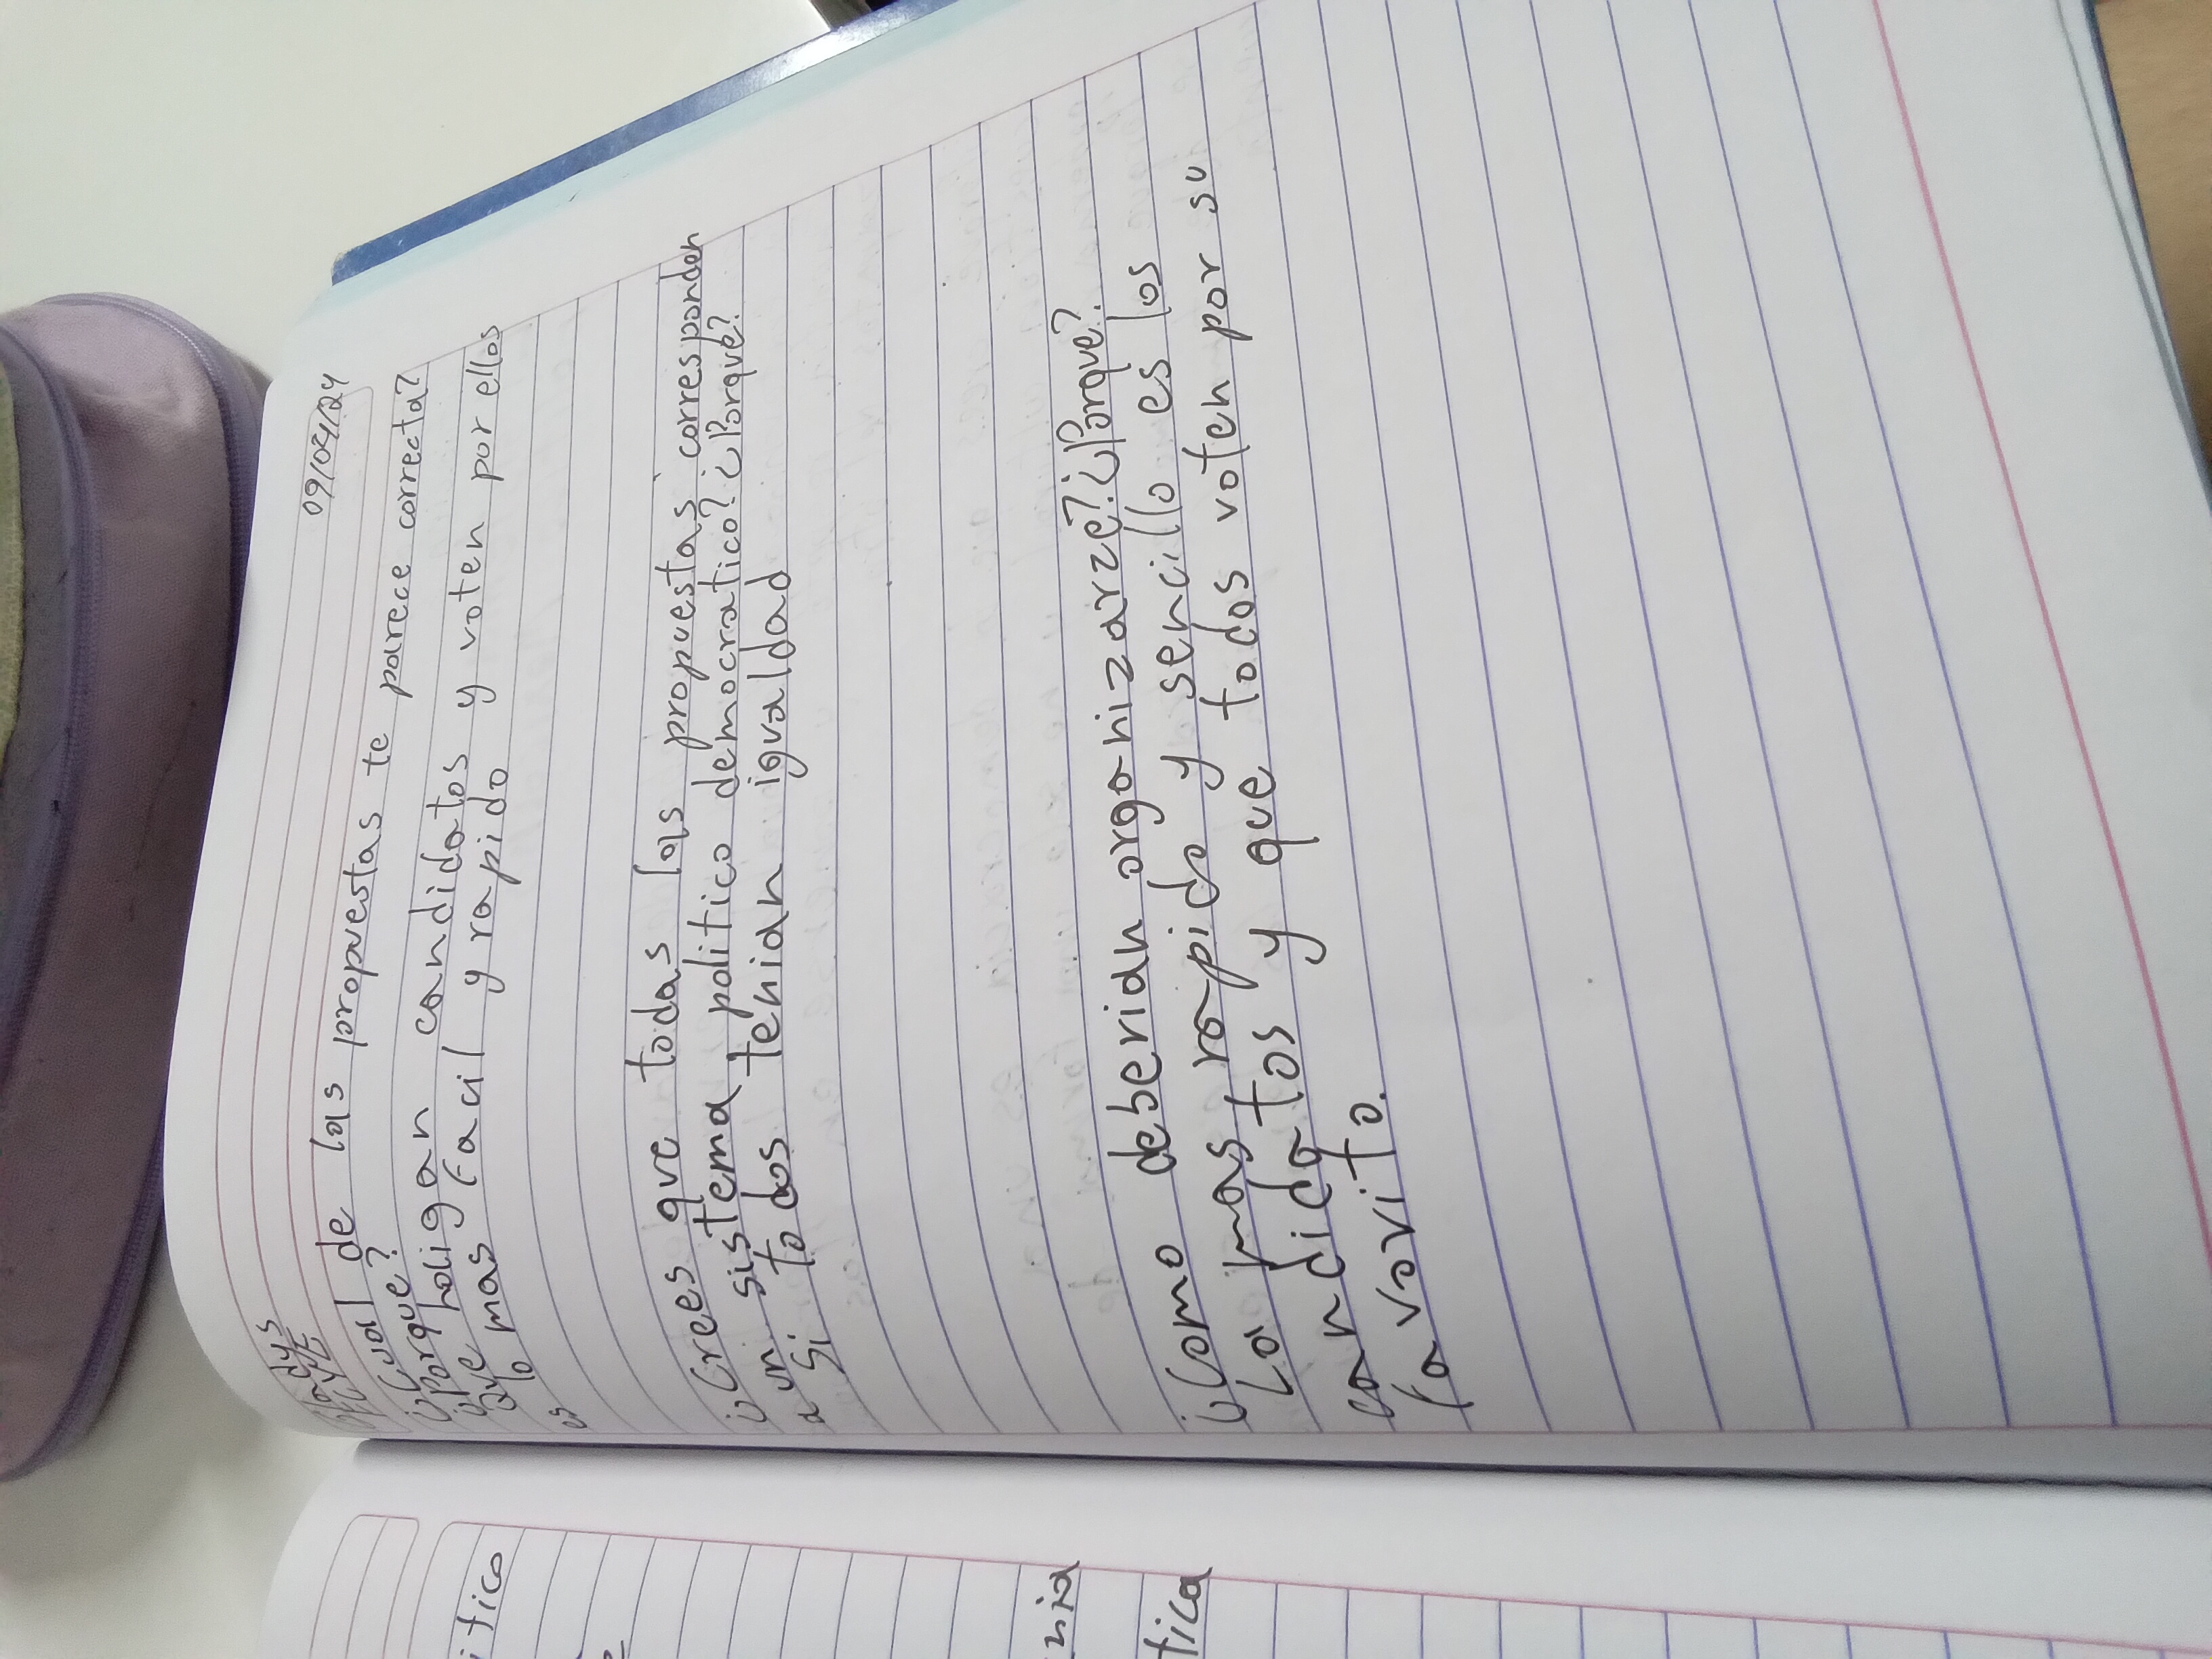 09/04/24
¿Cual de las propuestas te parece correcta?
¿Porque?
que holigan candidatos y voten por ellos
es lo mas facil y rapido
¿Crees que todas las propuestas corresponden
a un sistema politico democratico? ¿Porque?
Si todos tenian igualdad
¿Como deberian organizarze? ¿Porque?
Lo mas rapido y sencillo es los
candidatos y que todos voten por su
favorito.
itico
nia
tica